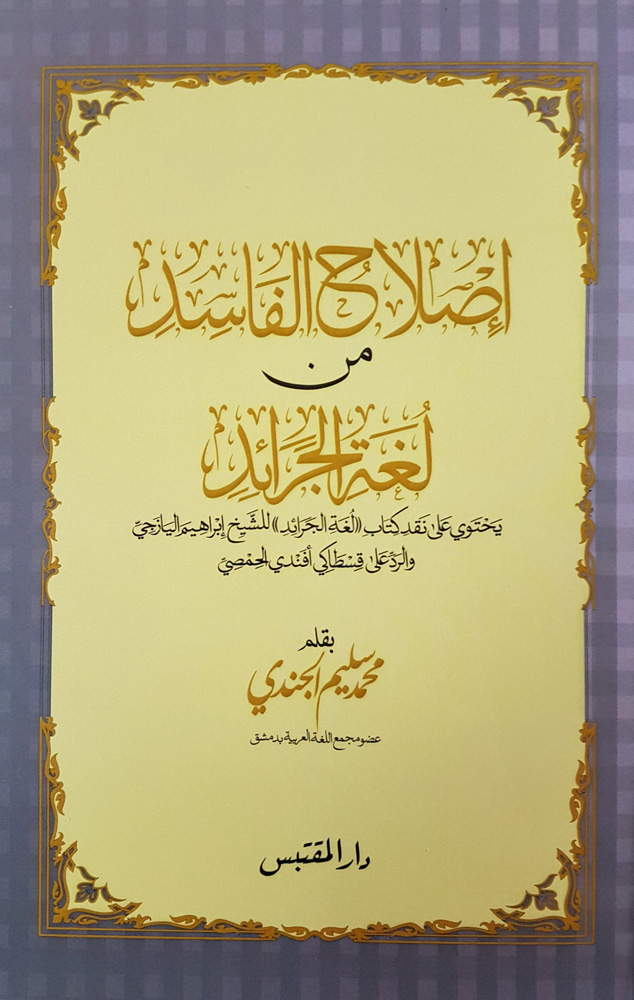 إِصْلَاحُ الفَاسِدِ
من
لُغَةِ الجَرَائِدِ
يَحْتَوي عَلى نَقدِ كِتَابِ «لُغَةِ الجَرَائِدِ» للشَّيخِ إبْرَاهِيم اليَازجِيِّ
والرَّدِّ عَلى قِسْطَاكي أَفَندي الحِمْصِيِّ
بقلم
محمد سليم الجندي
عضو مجمع اللغة العربية بدمشق
دار المقتبس